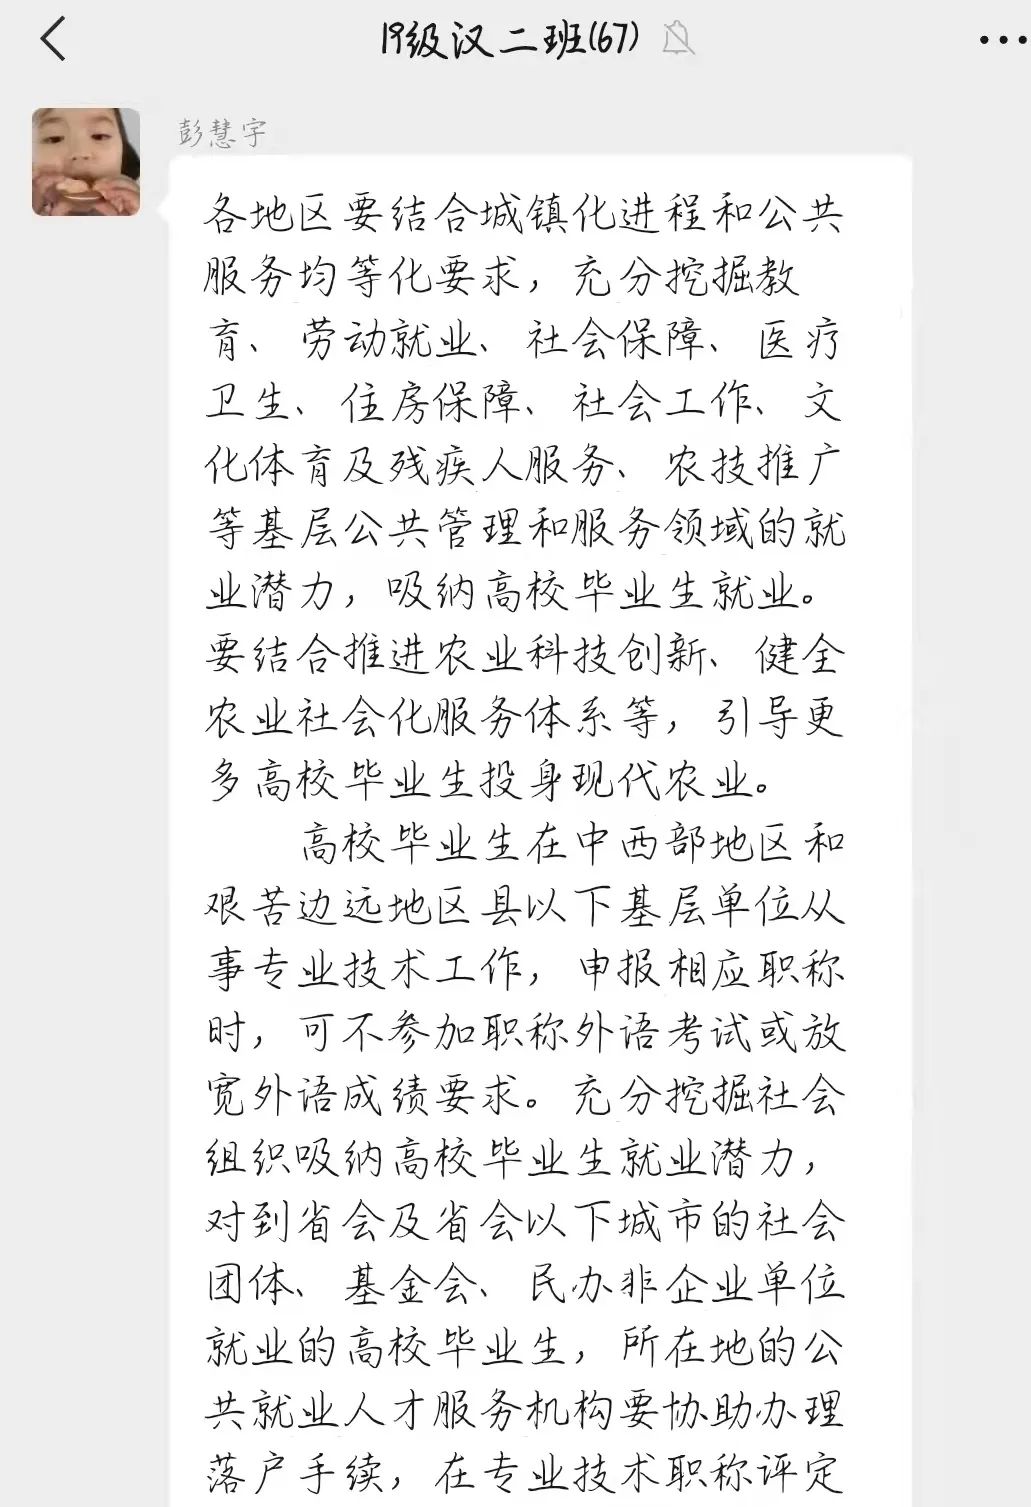 19级汉二班(67)
彭慧宇
各地区要结合城镇化进程和公共
服务均等化要求，充分挖掘教
育、劳动就业、社会保障、医疗
卫生、住房保障、社会工作、文
化体育及残疾人服务、农技推广
等基层公共管理和服务领域的就
业潜力，吸纳高校毕业生就业。
要结合推进农业科技创新、健全
农业社会化服务体系等，引导更
多高校毕业生投身现代农业。
高校毕业生在中西部地区和
艰苦边远地区县以下基层单位从
事专业技术工作，申报相应职称
时，可不参加职称外语考试或放
宽外语成绩要求。充分挖掘社会
组织吸纳高校毕业生就业潜力，
对到省会及省会以下城市的社会
团体、基金会、民办非企业单位
就业的高校毕业生，所在地的公
共就业人才服务机构要协助办理
落户手续，在专业技术职称评定